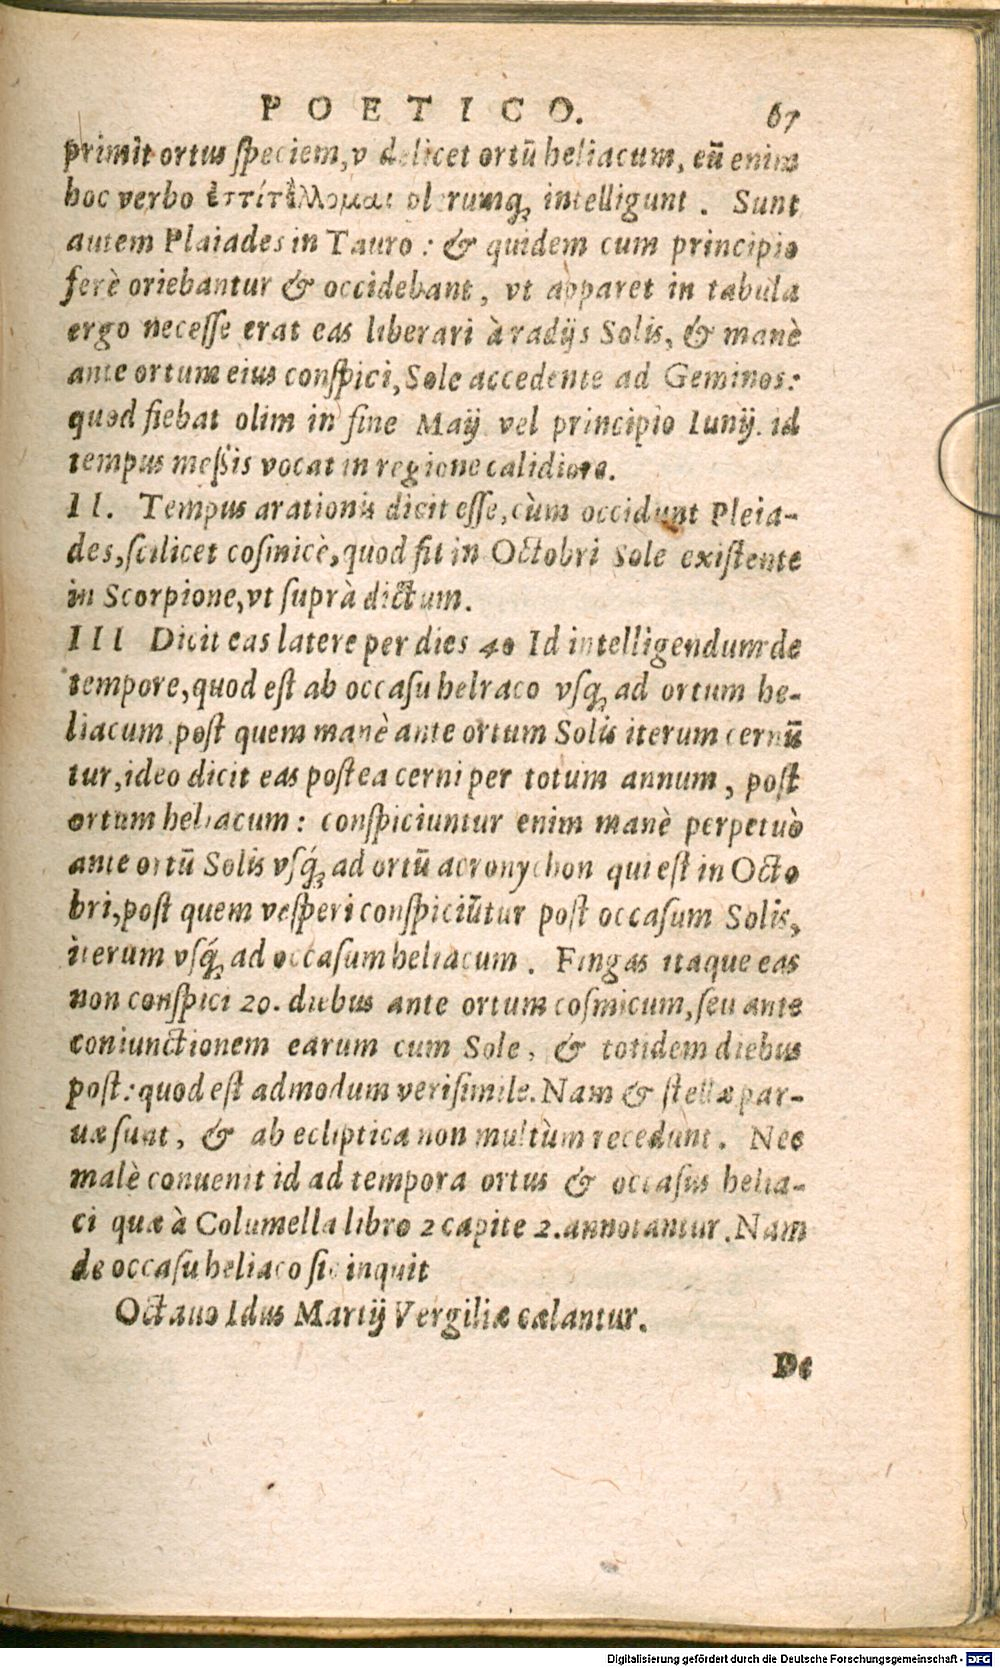 POETICO. 67
primit ortus speciem, v delicet ortū heliacum, eū enim
hoc verbo ἐπιτέλλομαι plerumq́; intelligunt. Sunt
autem Plaiades in Tauro: & quidem cum principio
ferè oriebantur & occidebant, vt apparet in tabula
ergo necesse erat eas liberari à radijs Solis, & manè
ante ortum eius conspici, Sole accedente ad Geminos:
quod fiebat olim in fine Maij vel principio Iunij. id
tempus messis vocat in regione calidiore.
II. Tempus arationis dicit esse, cùm occidunt Pleia-
des, scilicet cosmicè, quod fit in Octobri Sole existente
in Scorpione, vt suprà dictum.
III Dicit eas latere per dies 40 Id intelligendum de
tempore, quod est ab occasu helraco vsq; ad ortum he-
liacum post quem manè ante ortum Solis iterum cernū
tur, ideo dicit eas postea cerni per totum annum, post
ortum heliacum: conspiciuntur enim manè perpetuò
ante ortū Solis vsq́; ad ortū acronychon qui est in Octo
bri, post quem vesperi conspiciūtur post occasum Solis,
iterum vsq́; ad occasum heliacum. Fingas itaque eas
non conspici 20. diebus ante ortum cosmicum, seu ante
coniunctionem earum cum Sole, & totidem diebus
post: quod est admodum verisimile. Nam & stellæ par-
uæ sunt, & ab ecliptica non multùm recedunt. Nec
malè conuenit id ad tempora ortus & occasus helia-
ci quæ à Columella libro 2 capite 2. annotantur. Nam
de occasu heliaco sic inquit
Octauo Idus Martij Vergiliæ cælantur.
De
Digitalisierung gefördert durch die Deutsche Forschungsgemeinschaft - DFG